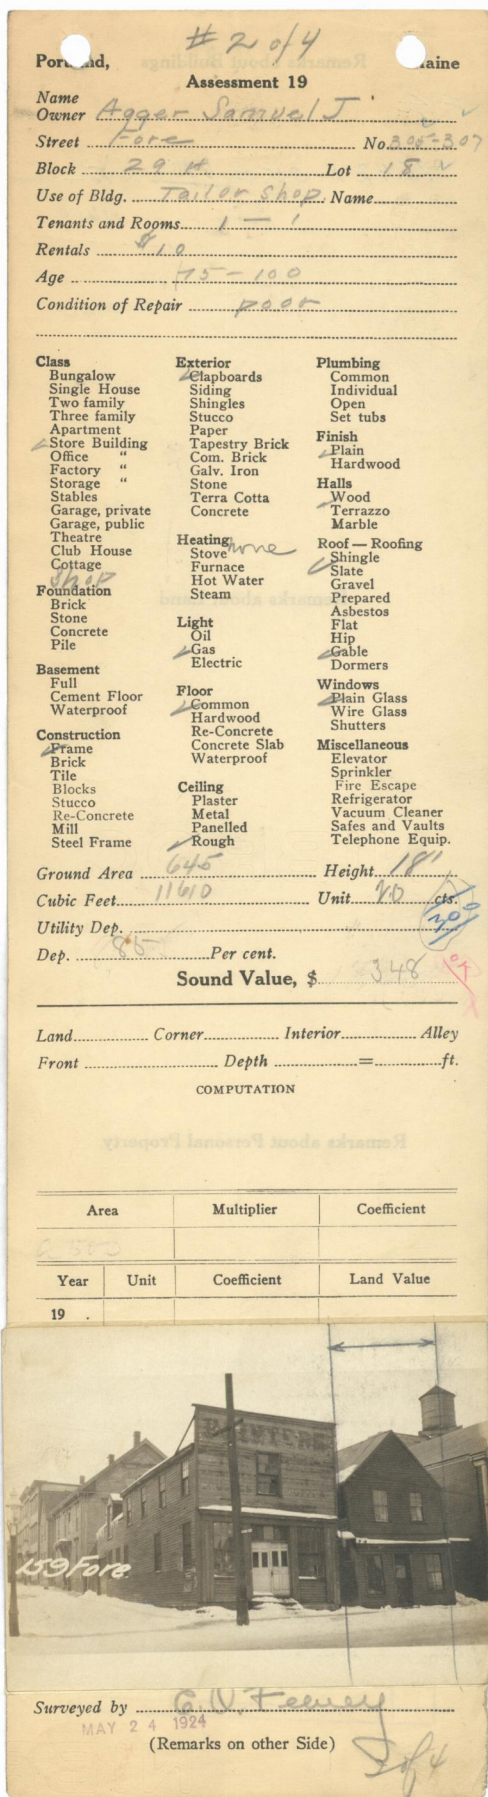 #2 of 4
Portland, Maine
Assessment 19
Name
Owner Agger Samuel J
Street Fore No. 305-307
Block 29 H Lot 18
Use of Bldg. Tailor Shop Name
Tenants and Rooms 1 - 1
Rentals $10
Age 75-100
Condition of Repair poor
Class
Bungalow
Single House
Two family
Three family
Apartment
Store Building
Office "
Factory "
Storage "
Stables
Garage, private
Garage, public
Theatre
Club House
Cottage
Shop
Foundation
Brick
Stone
Concrete
Pile
Basement
Full
Cement Floor
Waterproof
Construction
Frame
Brick
Tile
Blocks
Stucco
Re-Concrete
Mill
Steel Frame
Exterior
Clapboards
Siding
Shingles
Stucco
Paper
Tapestry Brick
Com. Brick
Galv. Iron
Stone
Terra Cotta
Concrete
Heating none
Stove
Furnace
Hot Water
Steam
Light
Oil
Gas
Electric
Floor
Common
Hardwood
Re-Concrete
Concrete Slab
Waterproof
Ceiling
Plaster
Metal
Panelled
Rough
Plumbing
Common
Individual
Open
Set tubs
Finish
Plain
Hardwood
Halls
Wood
Terrazzo
Marble
Roof — Roofing
Shingle
Slate
Gravel
Prepared
Asbestos
Flat
Hip
Gable
Dormers
Windows
Plain Glass
Wire Glass
Shutters
Miscellaneous
Elevator
Sprinkler
Fire Escape
Refrigerator
Vacuum Cleaner
Safes and Vaults
Telephone Equip.
Ground Area 645 Height 18'
Cubic Feet 11610 Unit 20 cts.
Utility Dep.
Dep. 85 Per cent.
OK
Sound Value, $ 348
Land Corner Interior Alley
Front Depth = ft.
COMPUTATION
Remarks about Personal Property
Area Multiplier Coefficient
Year Unit Coefficient Land Value
19 .
159 Fore
Surveyed by
MAY 24 1924
(Remarks on other Side)
2 of 4